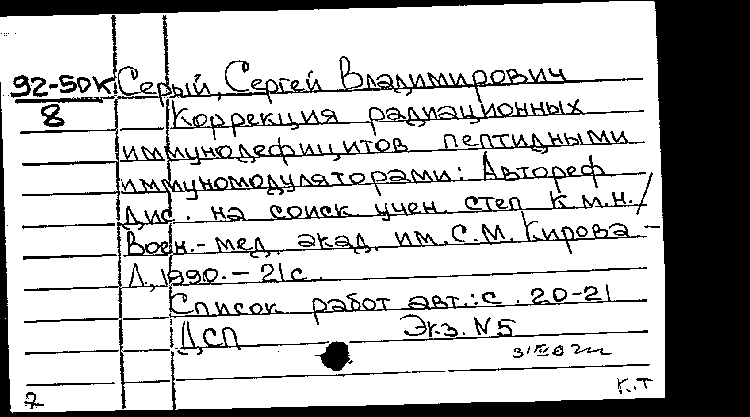 92-50К Серый, Сергей Владимирович
8 Коррекция радиационных
иммунодефицитов пептидными
иммуномодуляторами: Автореф
дис. на соиск учен. степ к.м.н./
Воен.-мед. акад. им. С.М. Кирова.-
Л, 1990.- 21с.
Список работ авт.: с. 20-21
ДСП Экз. N5
К.Т